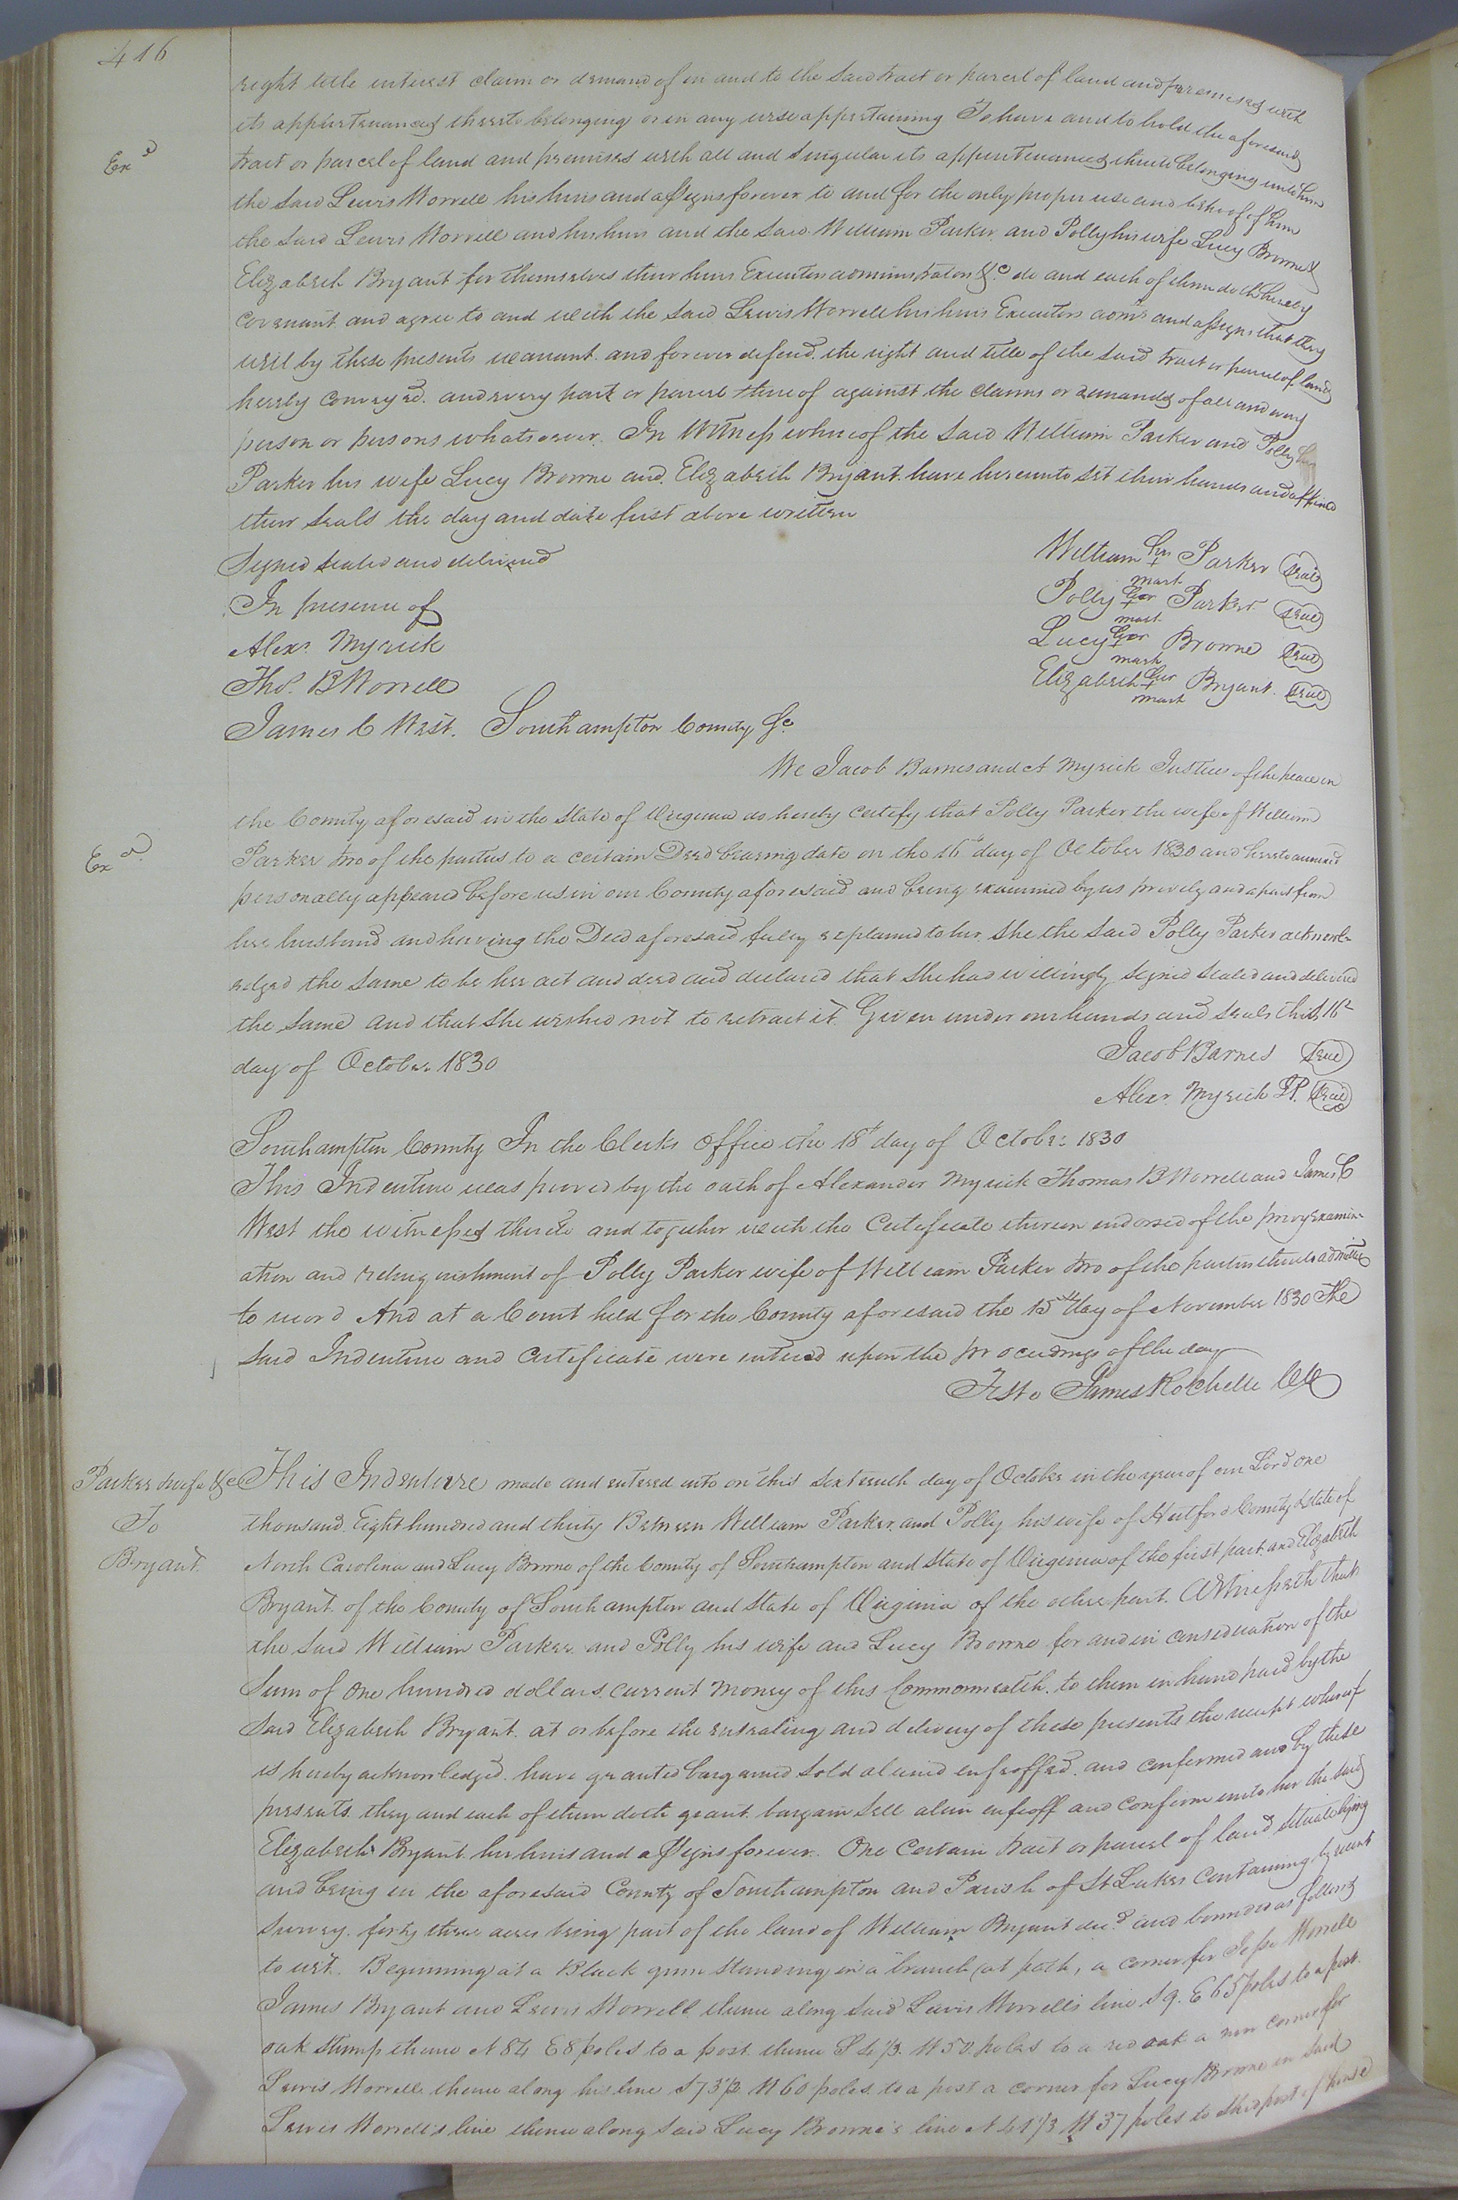 416
right title interest claim or demand of in and to the said tract or parcel of land and premises with
its appurtenances thereto belonging or in any wise appertaining To have and to hold the aforesaid
Exd
tract or parcel of land and premises with all and singular its appurtenances thereto belonging unto him
the said Lewis Worrell his heirs and assigns forever to and for the only proper use and behoof of him
the said Lewis Worrell and his heirs and the said William Parker and Polly his wife Lucy Browne &
Elizabeth Bryant for themselves their heirs Executors administrators &c do and each of them doth hereby
covenant and agree to and with the said Lewis Worrell his heirs Executors admrs and assigns that they
will by these presents warrant and forever defend the right and title of the said tract or parcel of land
hereby conveyed and every part or parcel thereof against the claims or demands of all and every
person or persons whatsoever. In Witness whereof the said William Parker and Polly
Parker his wife Lucy Browne and Elizabeth Bryant have hereunto set their hands and affixed
their seals the day and date first above written
Signed sealed and delivered
In presence of
Alexr Myrick
Thos. B Worrell
James C West.
William his + mark Parker seal
Polly her + mark Parker seal
Lucy her + mark Browne seal
Elizabeth her + mark Bryant. seal
Southampton County Sc
We Jacob Barnes and A Myrick Justices of the peace in
the County aforesaid in the State of Virginia do hereby certify that Polly Parker the wife of William
Exd
Parker two of the parties to a certain Deed bearing date on the 16th day of October 1830 and hereto annexed
personally appeared before us in our County aforesaid and being examined by us privily and apart from
her husband and having the Deed aforesaid fully explained to her She the said Polly Parker acknowl-
edged the same to be her act and deed and declared that she had willingly signed sealed and delivered
the same and that she wished not to retract it. Given under our hands and seals this 16th
day of October 1830
Jacob Barnes seal
Alexr. Myrick JP. seal
Southampton County In the Clerks Office the 18th day of October 1830
This Indenture was proved by the oath of Alexander Myrick Thomas B Worrell and James C
West the witnesses thereto and together with the Certificate thereon endorsed of the privy examin-
ation and relinquishment of Polly Parker wife of William Parker two of the parties thereto admitted
to record And at a Court held for the County aforesaid the 15th day of November 1830 The
said Indenture and Certificate were entered upon the proceedings of the day
Teste James Rochelle CC
Parker & wife &c
To
Bryant.
This Indenture made and entered into on this sixteenth day of October in the year of our Lord one
thousand Eight hundred and thirty Between William Parker and Polly his wife of Hertford County & State of
North Carolina and Lucy Browne of the County of Southampton and State of Virginia of the first part and Elizabeth
Bryant of the County of Southampton and State of Virginia of the other part. Witnesseth that
the said William Parker and Polly his wife and Lucy Browne for and in consideration of the
Sum of One hundred dollars current money of this Commonwealth to them in hand paid by the
said Elizabeth Bryant at or before the ensealing and delivery of these presents the receipt whereof
is hereby acknowledged have granted bargained sold aliened enfeoffed and confirmed and by these
presents they and each of them doth grant bargain sell alien enfeoff and confirm unto her the said
Elizabeth Bryant her heirs and assigns forever. One Certain tract or parcel of land situate lying
and being in the aforesaid County of Southampton and Parish of St Lukes Containing by recent
survey forty three acres being part of the land of William Bryant decd and bounded as follows
to wit. Beginning at a Black gum standing in a branch at path, a corner for Jesse Worrell
James Bryant and Lewis Worrell thence along said Lewis Worrell's line S 9. E 65 poles to a post
oak stump thence N 84 E 8 poles to a post thence S 4 1/3. W 50 poles to a red oak a new corner for
Lewis Worrell thence along his line S 73 1/2 W 60 poles to a post a corner for Lucy Browne in said
Lewis Worrell's line thence along said Lucy Browne's line N 41 1/3 W 37 poles to the post of